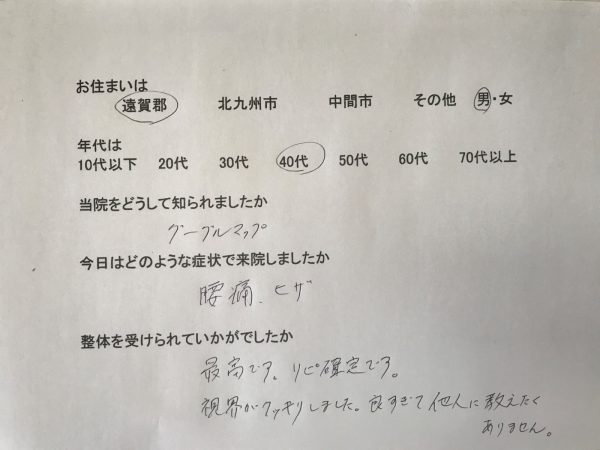 お住まいは
遠賀郡 北九州市 中間市 その他 男・女
年代は
10代以下 20代 30代 40代 50代 60代 70代以上
当院をどうして知られましたか
グーグルマップ
今日はどのような症状で来院しましたか
腰痛、ヒザ
整体を受けられていかがでしたか
最高です。リピ確定です。
視界がクッキリしました。良すぎて他人に教えたく
ありません。